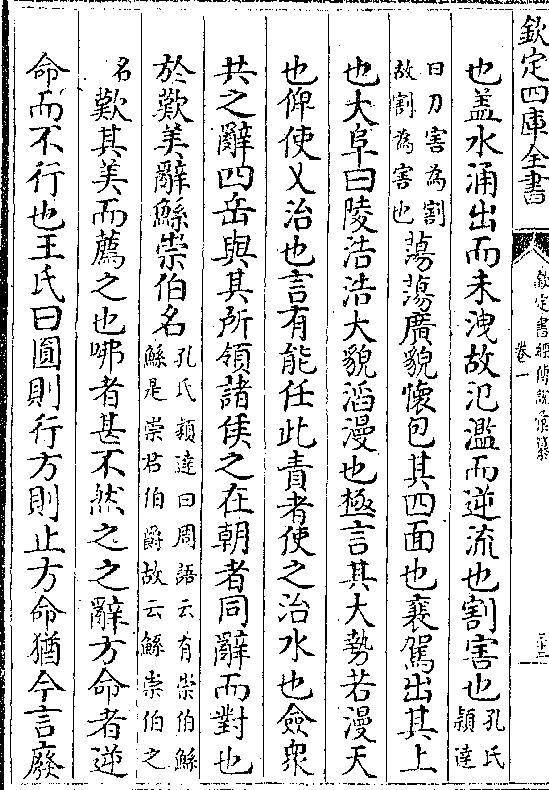 欽定四庫全書
欽定書經傳說彙纂
卷一
三十三
也蓋水涌出而未洩故氾濫而逆流也割害也孔氏穎達
曰刀害為割故割為害也蕩蕩廣貌懷包其四面也襄駕出其上
也大阜曰陵浩浩大貌滔漫也極言其大勢若漫天
也俾使乂治也言有能任此責者使之治水也僉衆
共之辭四岳與其所領諸侯之在朝者同辭而對也
於歎美辭鯀崇伯名孔氏穎達曰周語云有崇伯鯀鯀是崇君伯爵故云鯀崇伯之
名歎其美而薦之也咈者甚不然之之辭方命者逆
命而不行也王氏曰圓則行方則止方命猶今言廢